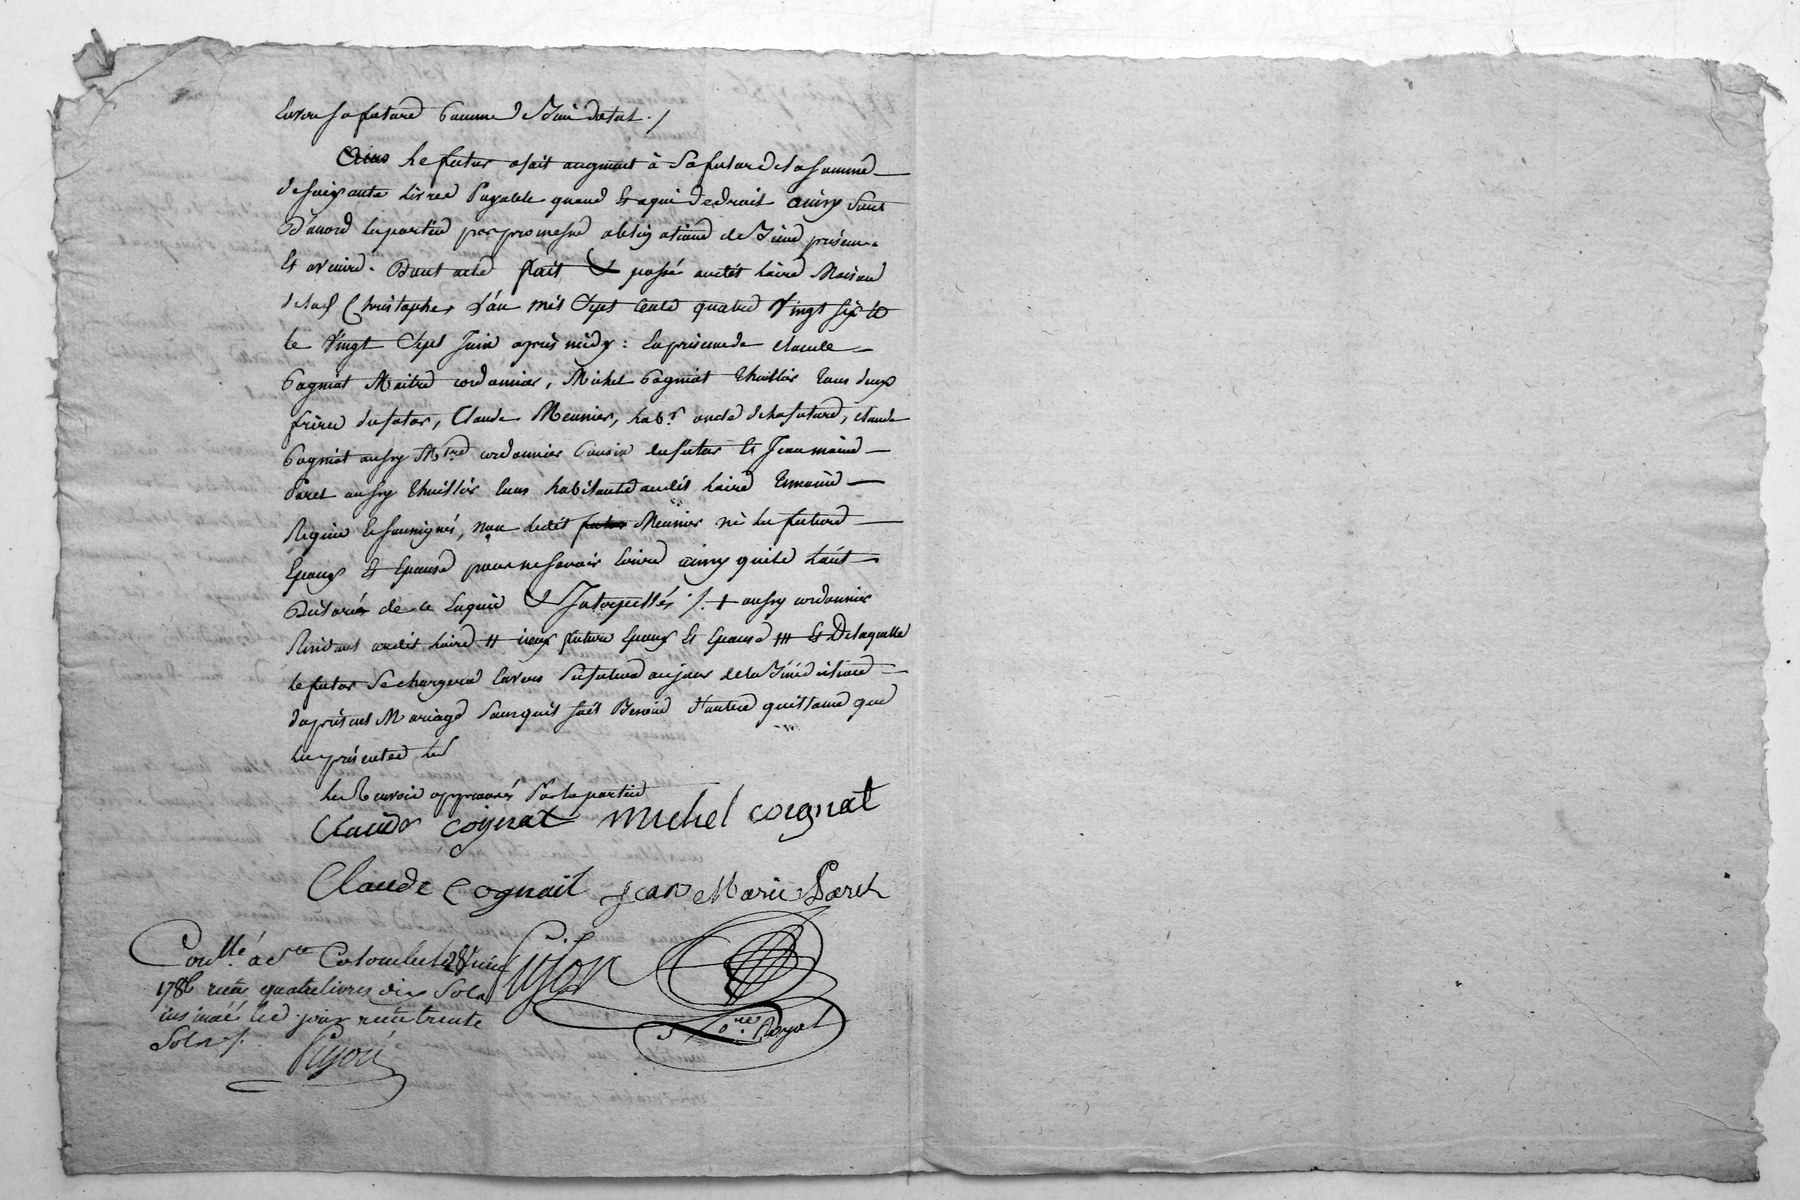 Envers sa future comme de Bien dotal ./
Le futur a fait augment à sa future de la somme
de soixante livres payable quand Et a qui de droit ainsy sont
D'accord les parties par promesse obligations de Biens présens
Et avenirs. Dont acte fait & passé audit Maison
de Christophe L'an mil Sept Cents quatre Vingt six Et
le Vingt Sept Juin après midy : En présence de claude
Cogniat Maitre cordonnier, Michel Cogniat thuillier tous deux
frères du futur, Claude Meunier, hab.t oncle de la future, claude
Cogniat aussy M.tre cordonnier Cousin du futur Et Jean marie
Paret aussy thuillier tous habitants audit
Requis Et soussignés, non ledit Meunier ni les futurs
Epoux Et Epouse pour ne savoir Ecrire ainsy qu'ils l'ont
Déclaré de ce Enquis & Interpellés ./. + aussy cordonnier
Résidant audit # iceux futurs Epoux Et Epouse ### Et De laquelle
le futur Se chargera Envers sa future au jour de la Bénédiction
du présent Mariage Sans qu'il soit Besoin d'autre quittance que
les présentes
Les Renvois approuvés Par les parties
Claude Coignat Michel Coignat
Claude Cognait Jean Marie Paret
Con.llé à S.te Colombe le 28 juin Pijon
1786 reçu quatre livres dix Sols
insinué led. jour reçu trente N.re Royal
Sols ./.
Pijon